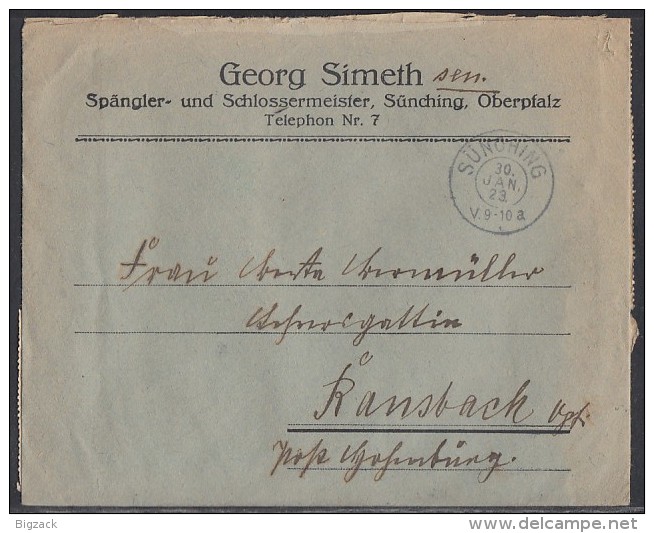 Georg Simeth sen.
Spängler- und Schlossermeister, Sünching, Oberpfalz
Telephon Nr. 7
SÜNCHING
30.
JAN.
23.
V.9-10 a
Frau Berta Obermüller
Lehrersgattin
Ransbach Opf.
Post Hohenburg.
Bigzack
www.delcampe.net